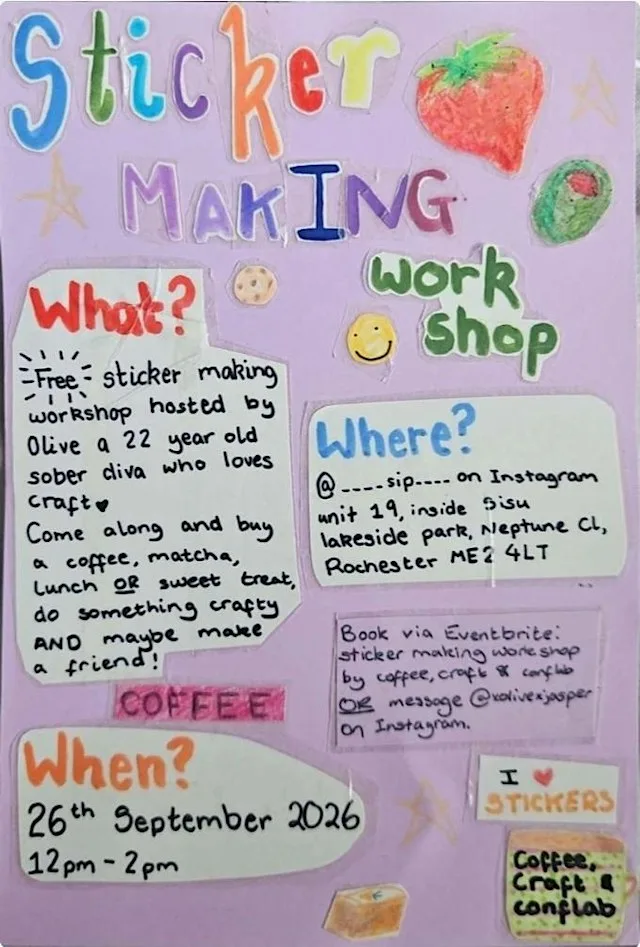 Sticker
MAKING
work
shop
What?
Free sticker making
workshop hosted by
Olive a 22 year old
sober diva who loves
craft♥
Come along and buy
a coffee, matcha,
lunch OR sweet treat,
do something crafty
AND maybe make
a friend!
Where?
@----sip---- on Instagram
unit 19, inside Sisu
lakeside park, Neptune Cl,
Rochester ME2 4LT
Book via Eventbrite:
sticker making workshop
by coffee, craft & conflab
OR message @xolivexjasper
on Instagram.
COFFEE
When?
26th September 2026
12pm - 2pm
I ♥
STICKERS
Coffee,
Craft &
conflab